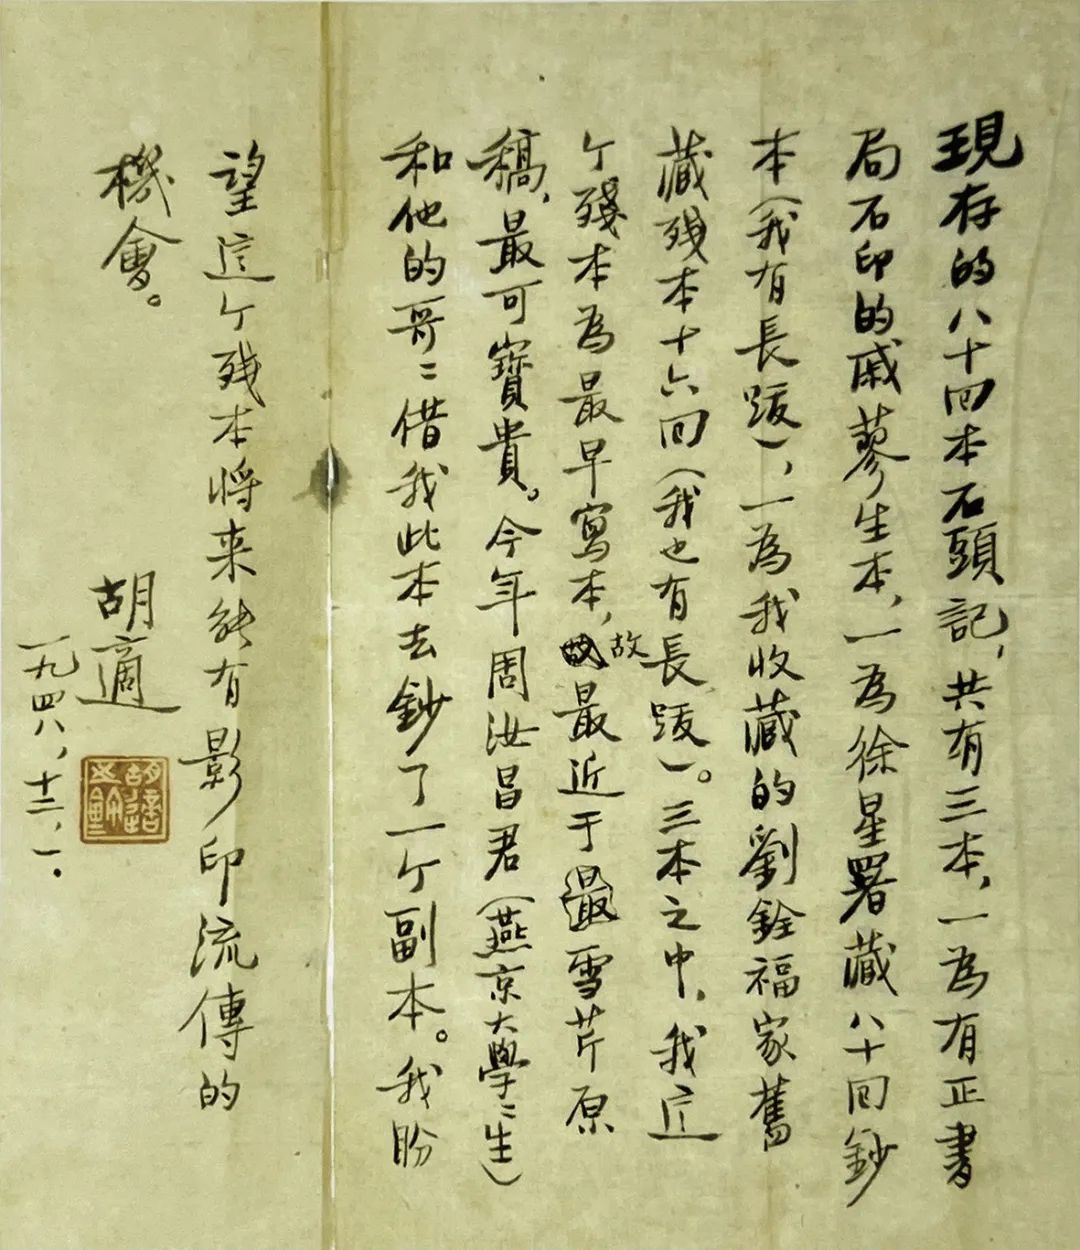 現存的八十回本石頭記，共有三本，一為有正書
局石印的戚蓼生本，一為徐星署藏八十回鈔
本（我有長跋），一為我收藏的劉銓福家舊
藏殘本十六回（我也有長跋）。三本之中，我這
个殘本為最早寫本，故最近于雪芹原
稿，最可寶貴。今年周汝昌君（燕京大學々生）
和他的哥々借我此本去鈔了一个副本。我盼
望這个残本將来能有影印流傳的
機會。
胡適
一九四八，十二，一．
胡適之鉨